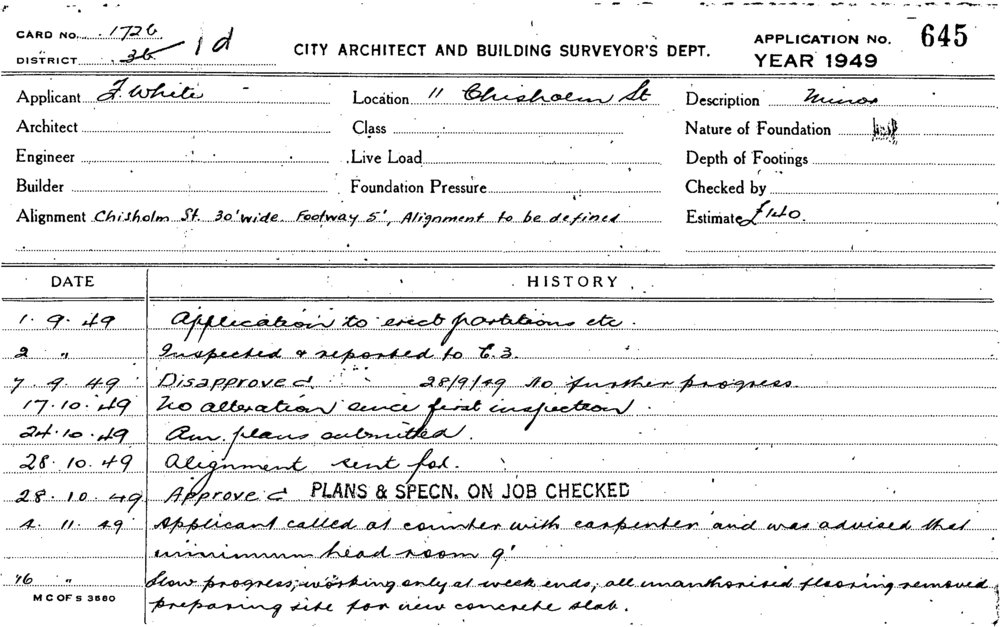 CARD No. 1726
DISTRICT 3b 1d
CITY ARCHITECT AND BUILDING SURVEYOR'S DEPT.
APPLICATION No. 645
YEAR 1949
Applicant F. White Location 11 Chisholm St Description Minor
Architect Class Nature of Foundation
Engineer Live Load Depth of Footings
Builder Foundation Pressure Checked by
Alignment Chisholm St. 30' wide. Footway 5', Alignment to be defined Estimate £140.
DATE HISTORY
1. 9. 49 Application to erect partitions etc.
2 " Inspected & reported to C.3.
7. 9. 49 Disapproved. 28/9/49 No further progress.
17.10.49 No alteration since first inspection.
24.10.49 Am. plans submitted.
28.10.49 Alignment sent for.
28.10.49 Approved PLANS & SPECN. ON JOB CHECKED
11. 49 Applicant called at counter with carpenter and was advised that
minimum head room 9'
16 " Slow progress, working only at week ends, all unauthorised flooring removed
M C OF S 3560
preparing site for new concrete slab.